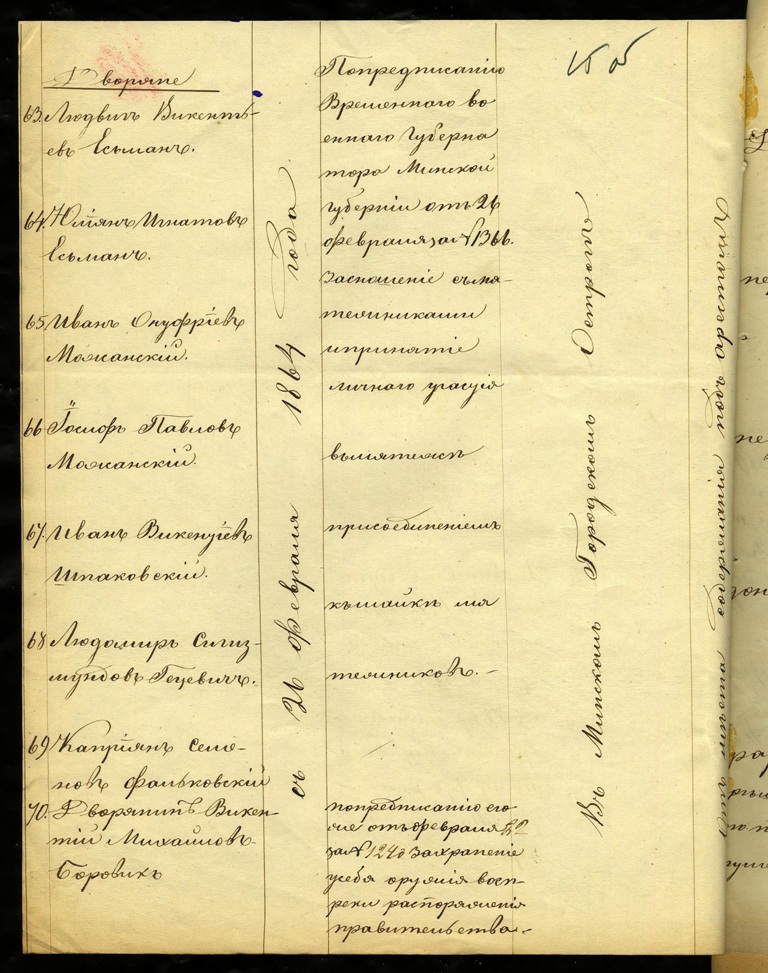 Дворяне
63. Людвигъ Викенть-
евъ Есьманъ.
64. Юліянъ Игнатовъ
Есьманъ.
65 Иванъ Онуфріевъ
Можанскій.
66 Іосифъ Павловъ
Можанскій.
67. Иванъ Викентіевъ
Шпаковскій.
68 Людомиръ Сигиз-
мундовъ Гецевичъ.
69 Капріянъ Семе-
новъ Фальковскій
70. Дворянинъ Викен-
тій Михайловъ
Боровикъ
съ 26 февраля 1864 года
Попредписанію
Временнаго во
еннаго Губерна
тора Минской
губерніи отъ 26
февраля за № 1366.
засношеніе съмя-
тежниками
ипринятіе
личнаго участія
вьмятежѣ
присоединеніемъ
къшайкѣ мя
тежниковъ. -
попредписанію его
же отъ февраля
за № 1240 захраненіе
усебя оружія воп-
реки распоряженія
правительства.-
Въ Минскомъ Городскомъ Острогѣ
содержанія подъ арестомъ